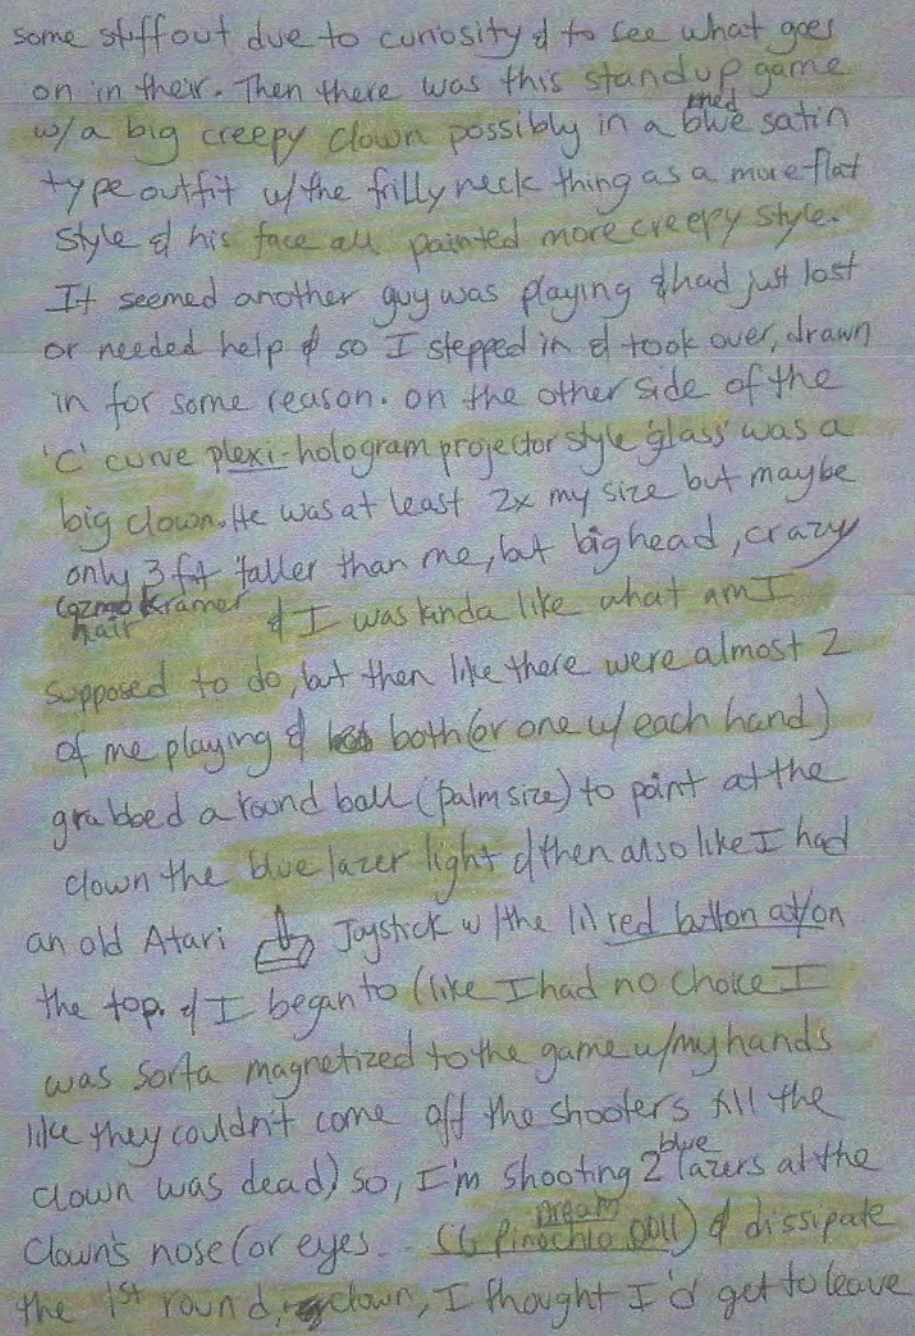 some stiff out due to curiosity & to see what goes
on in their. Then there was this stand up game
w/a big creepy clown possibly in a blue satin
type outfit w/the frilly neck thing as a more flat
style & his face all painted more creepy style.
It seemed another guy was playing & had just lost
or needed help & so I stepped in & took over, drawn
in for some reason. on the other side of the
'C' curve plexi-hologram projector style 'glass' was a
big clown. He was at least 2x my size but maybe
only 3 ft taller than me, but big head, crazy
Cozmo Kramer
hair & I was kinda like what am I
supposed to do, but then like there were almost 2
of me playing & both (or one w/ each hand)
grabbed a round ball (palm size) to point at the
clown the blue lazer light & then also like I had
an old Atari Joystick w/the lil red button at/on
the top. & I began to (like I had no choice I
was sorta magnetized to the game w/my hands
like they couldn't come off the shooters till the
clown was dead) so, I'm shooting 2 blue lazers at the
clown's nose (or eyes.. Pinochio Dream) & dissipate
the 1st round, clown, I thought I'd get to leave